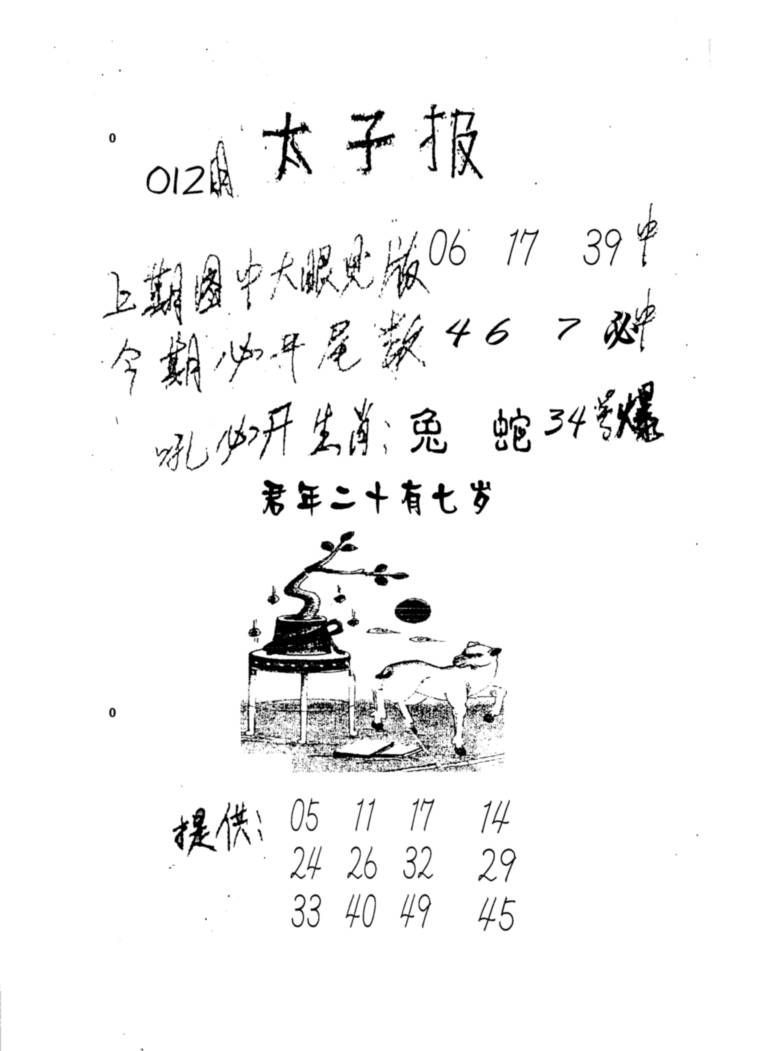 太子报
012期
上期图中大眼见版06 17 39中
今期必开尾数4 6 7必中
吼必开生肖:兔 蛇34号爆
君年二十有七岁
提供: 05 11 17 14
24 26 32 29
33 40 49 45